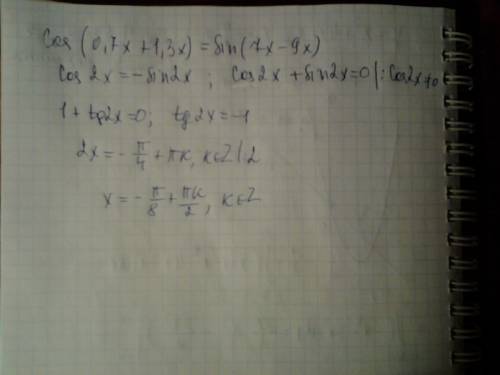 Cos(0,7x+1,3x)=sin(7x-9x)
Cos2x=-sin2x ; Cos2x+sin2x=0|:Cos2x≠0
1+tg2x=0; tg2x=-1
2x=-π/4+πк, к∈Z|:2
x=-π/8+πк/2, к∈Z